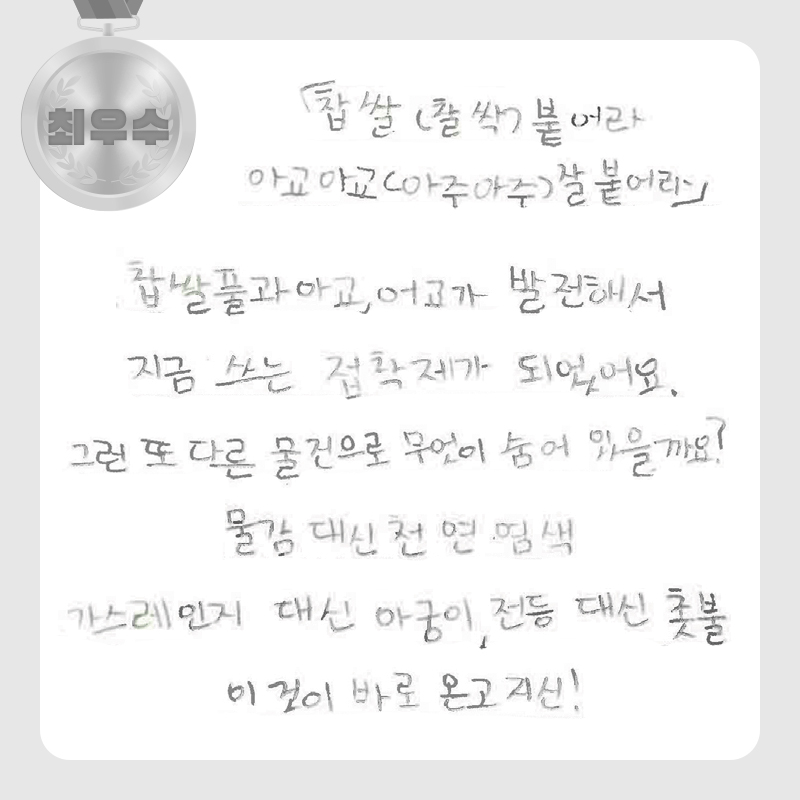 최우수
「찹쌀(찰싹)붙어라
아교아교(아주아주)잘붙어라」
찹쌀풀과아교,어교가 발전해서
지금 쓰는 접착제가 되었어요.
그런 또 다른 물건으로 무엇이 숨어 있을까요?
물감 대신 천연 염색
가스레인지 대신 아궁이, 전등 대신 촛불
이것이 바로 온고지신!